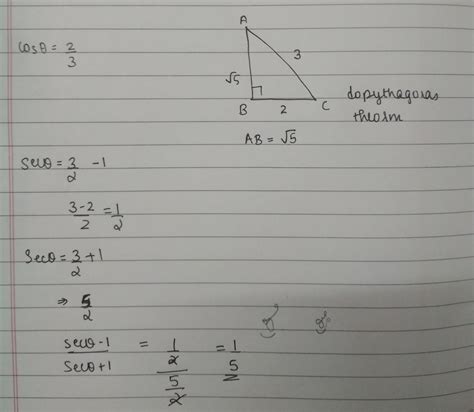 A
cosθ = 2/3
3
√5
B 2 C
do pythagoras
theolm
AB = √5
secθ = 3/2 - 1
3-2/2 = 1/2
secθ = 3/2 + 1
⇒ 5/2
secθ-1/secθ+1 = 1/2/5/2 = 1/5